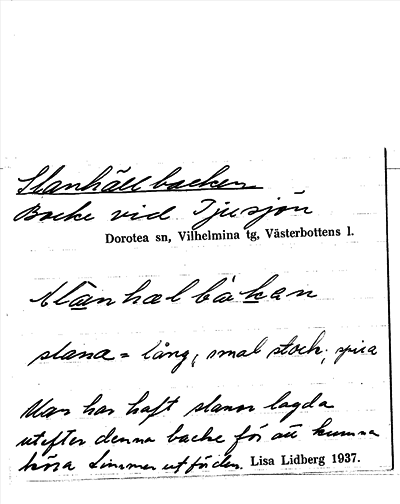 Slanhällbacken
Backe vid Tjusjön
Dorotea sn, Vilhelmina tg, Västerbottens l.
slanhælbakan
slana = lång, smal stock, spira
Man har haft slanor lagda
utefter denna backe för att kunna
köra timmer utför den. Lisa Lidberg 1937.